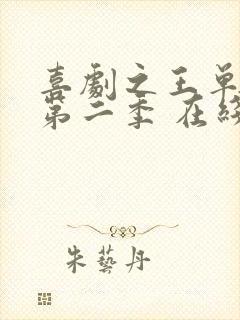 喜劇之王單
第二季 在線
朱藝丹